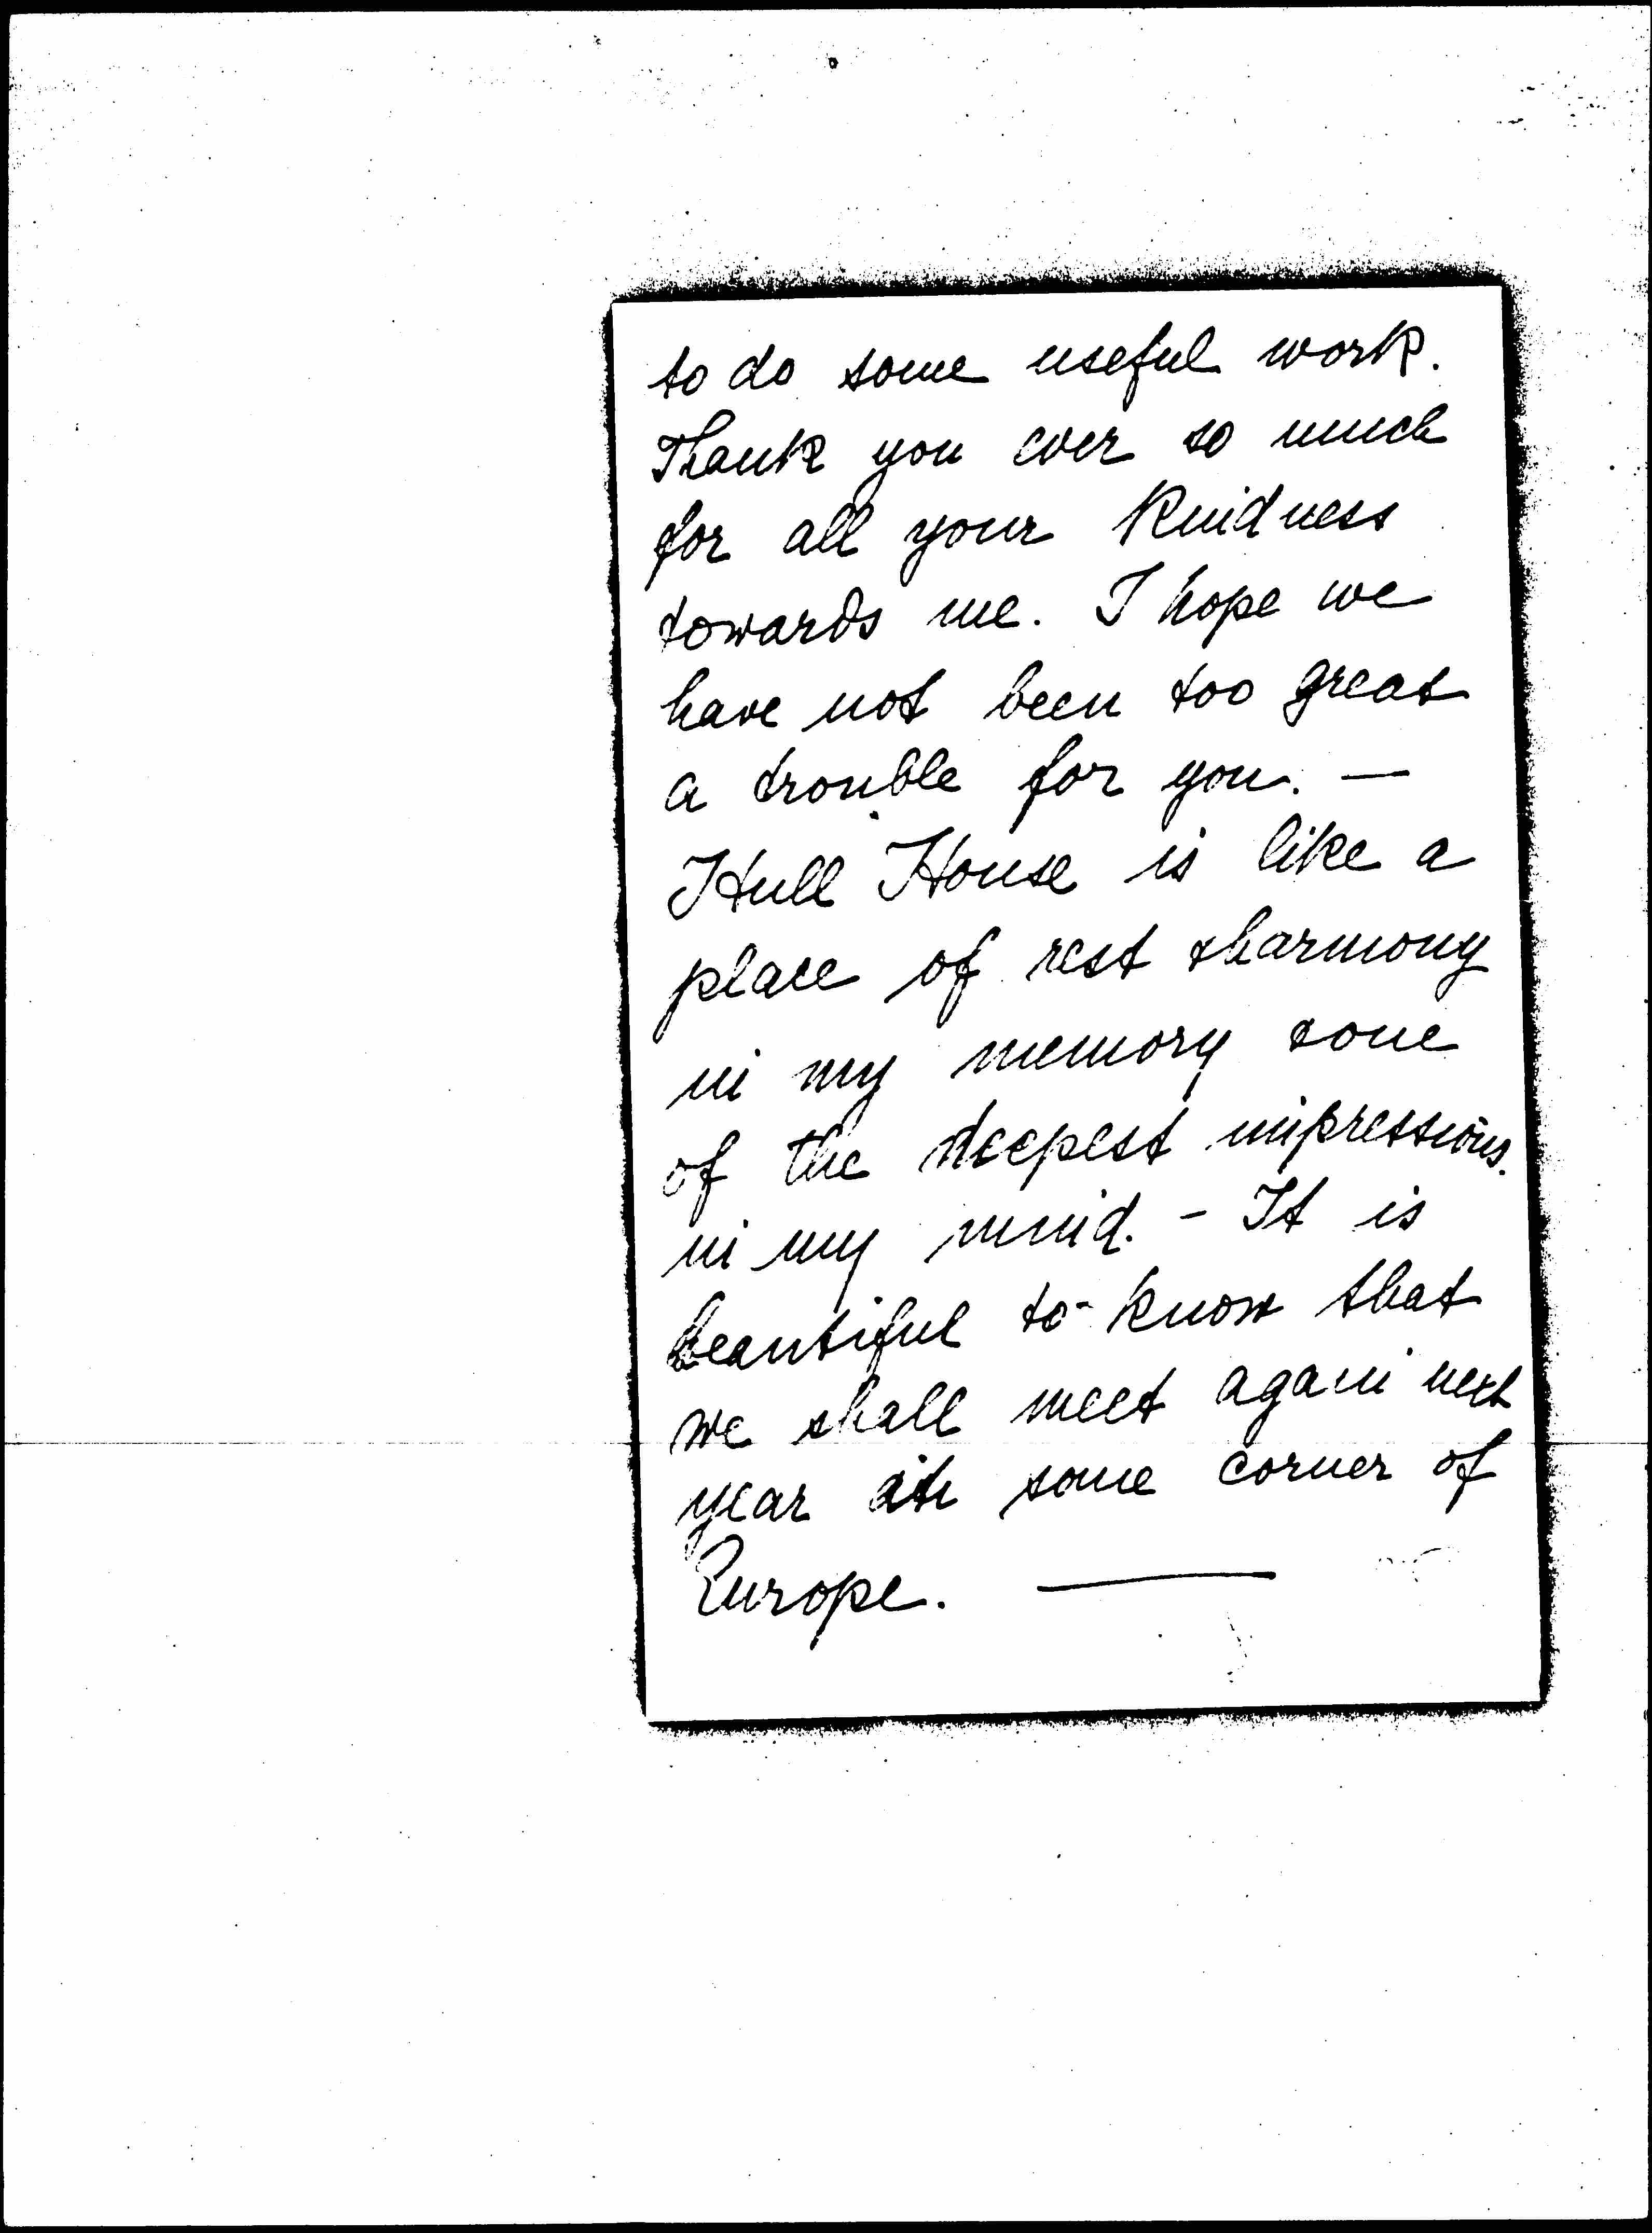 to do some useful work.
Thank you ever so much
for all your kindness
towards me. I hope we
have not been too great
a trouble for you. —
Hull House is like a
place of rest & harmony
in my memory & one
of the deepest impressions
in my mind. - It is
beautiful to know that
we shall meet again next
year at some corner of
Europe. —